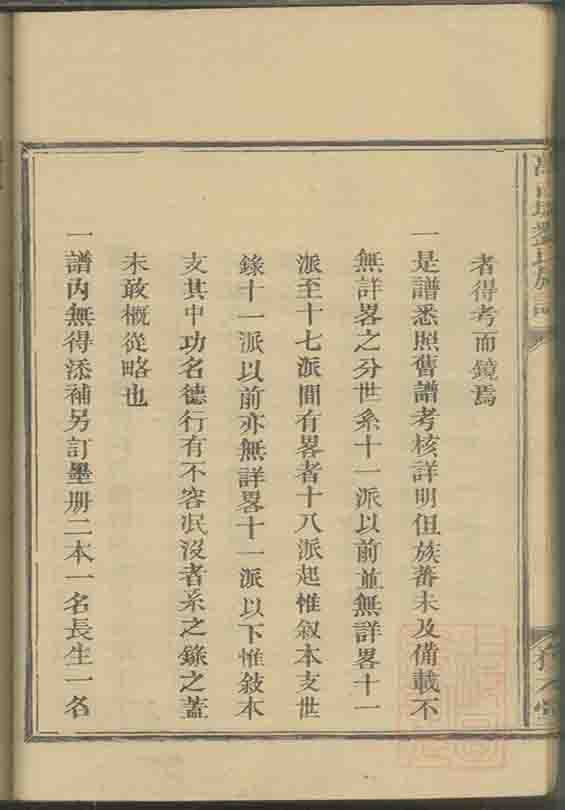 者得考而鏡焉
一是譜悉照舊譜考核詳明但族蕃未及備載不
無詳畧之分世系十一派以前並無詳畧十一
派至十七派間有畧者十八派起惟叙本支世
錄十一派以前亦無詳畧十一派以下惟敍本
支其中功名德行有不容泯沒者系之錄之蓋
未敢概從略也
一譜內無得添補另訂墨册二本一名長生一名